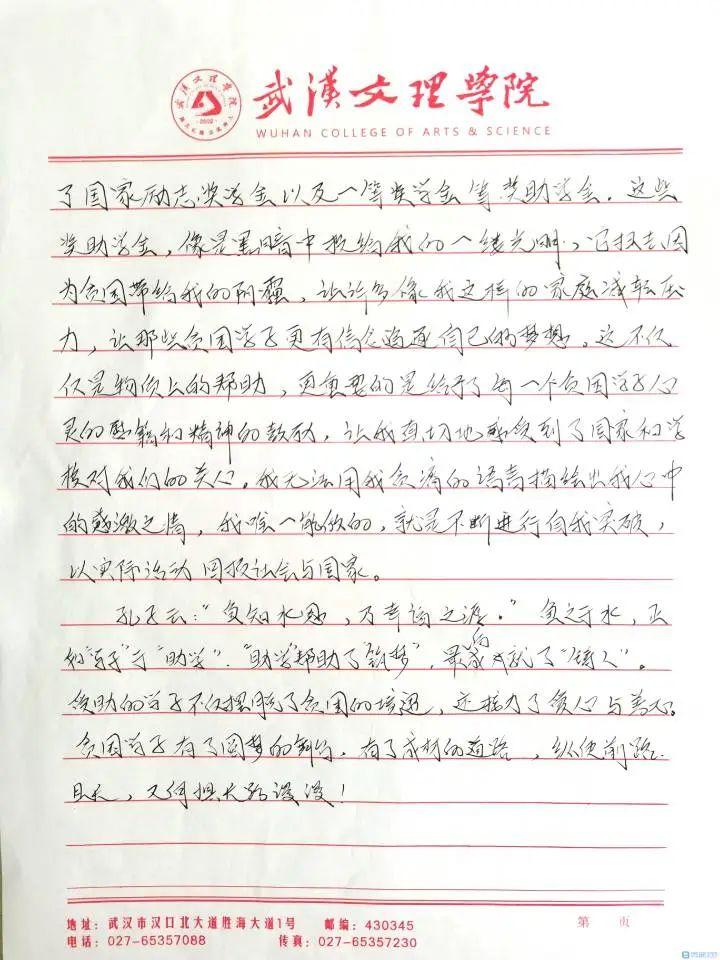 武漢文理學院
WUHAN COLLEGE OF ARTS & SCIENCE
武漢文理學院
2002
了国家励志奖学金以及一等奖学金等奖助学金。这些
奖助学金，像是黑暗中投给我的一缕光明，它扫去因
为贫困带给我的阴霾，让许多像我这样的家庭减轻压
力，让那些贫困学子更有信念追逐自己的梦想。这不仅
仅是物质上的帮助，更重要的是给予了每一个贫困学子心
灵的慰藉和精神的鼓励，让我真切地感受到了国家和学
校对我们的关心。我无法用我贫瘠的语言描绘出我心中
的感激之情，我唯一能做的，就是不断进行自我突破，
以实际活动回报社会与国家。
孔子云：“鱼知水恩，万幸福之源。”鱼之于水，正
如“学子”于“助学”。“助学”帮助了“筑梦”，最后成就了“铸人”。
受助的学子不仅摆脱了贫困的境遇，还接力了良心与善心。
贫困学子有了圆梦的，有了成材的道路，纵使前路
，又何惧长路漫漫！
地址：武汉市汉口北大道胜海大道1号 邮编：430345 第 页
电话：027-65357088 传真：027-65357230